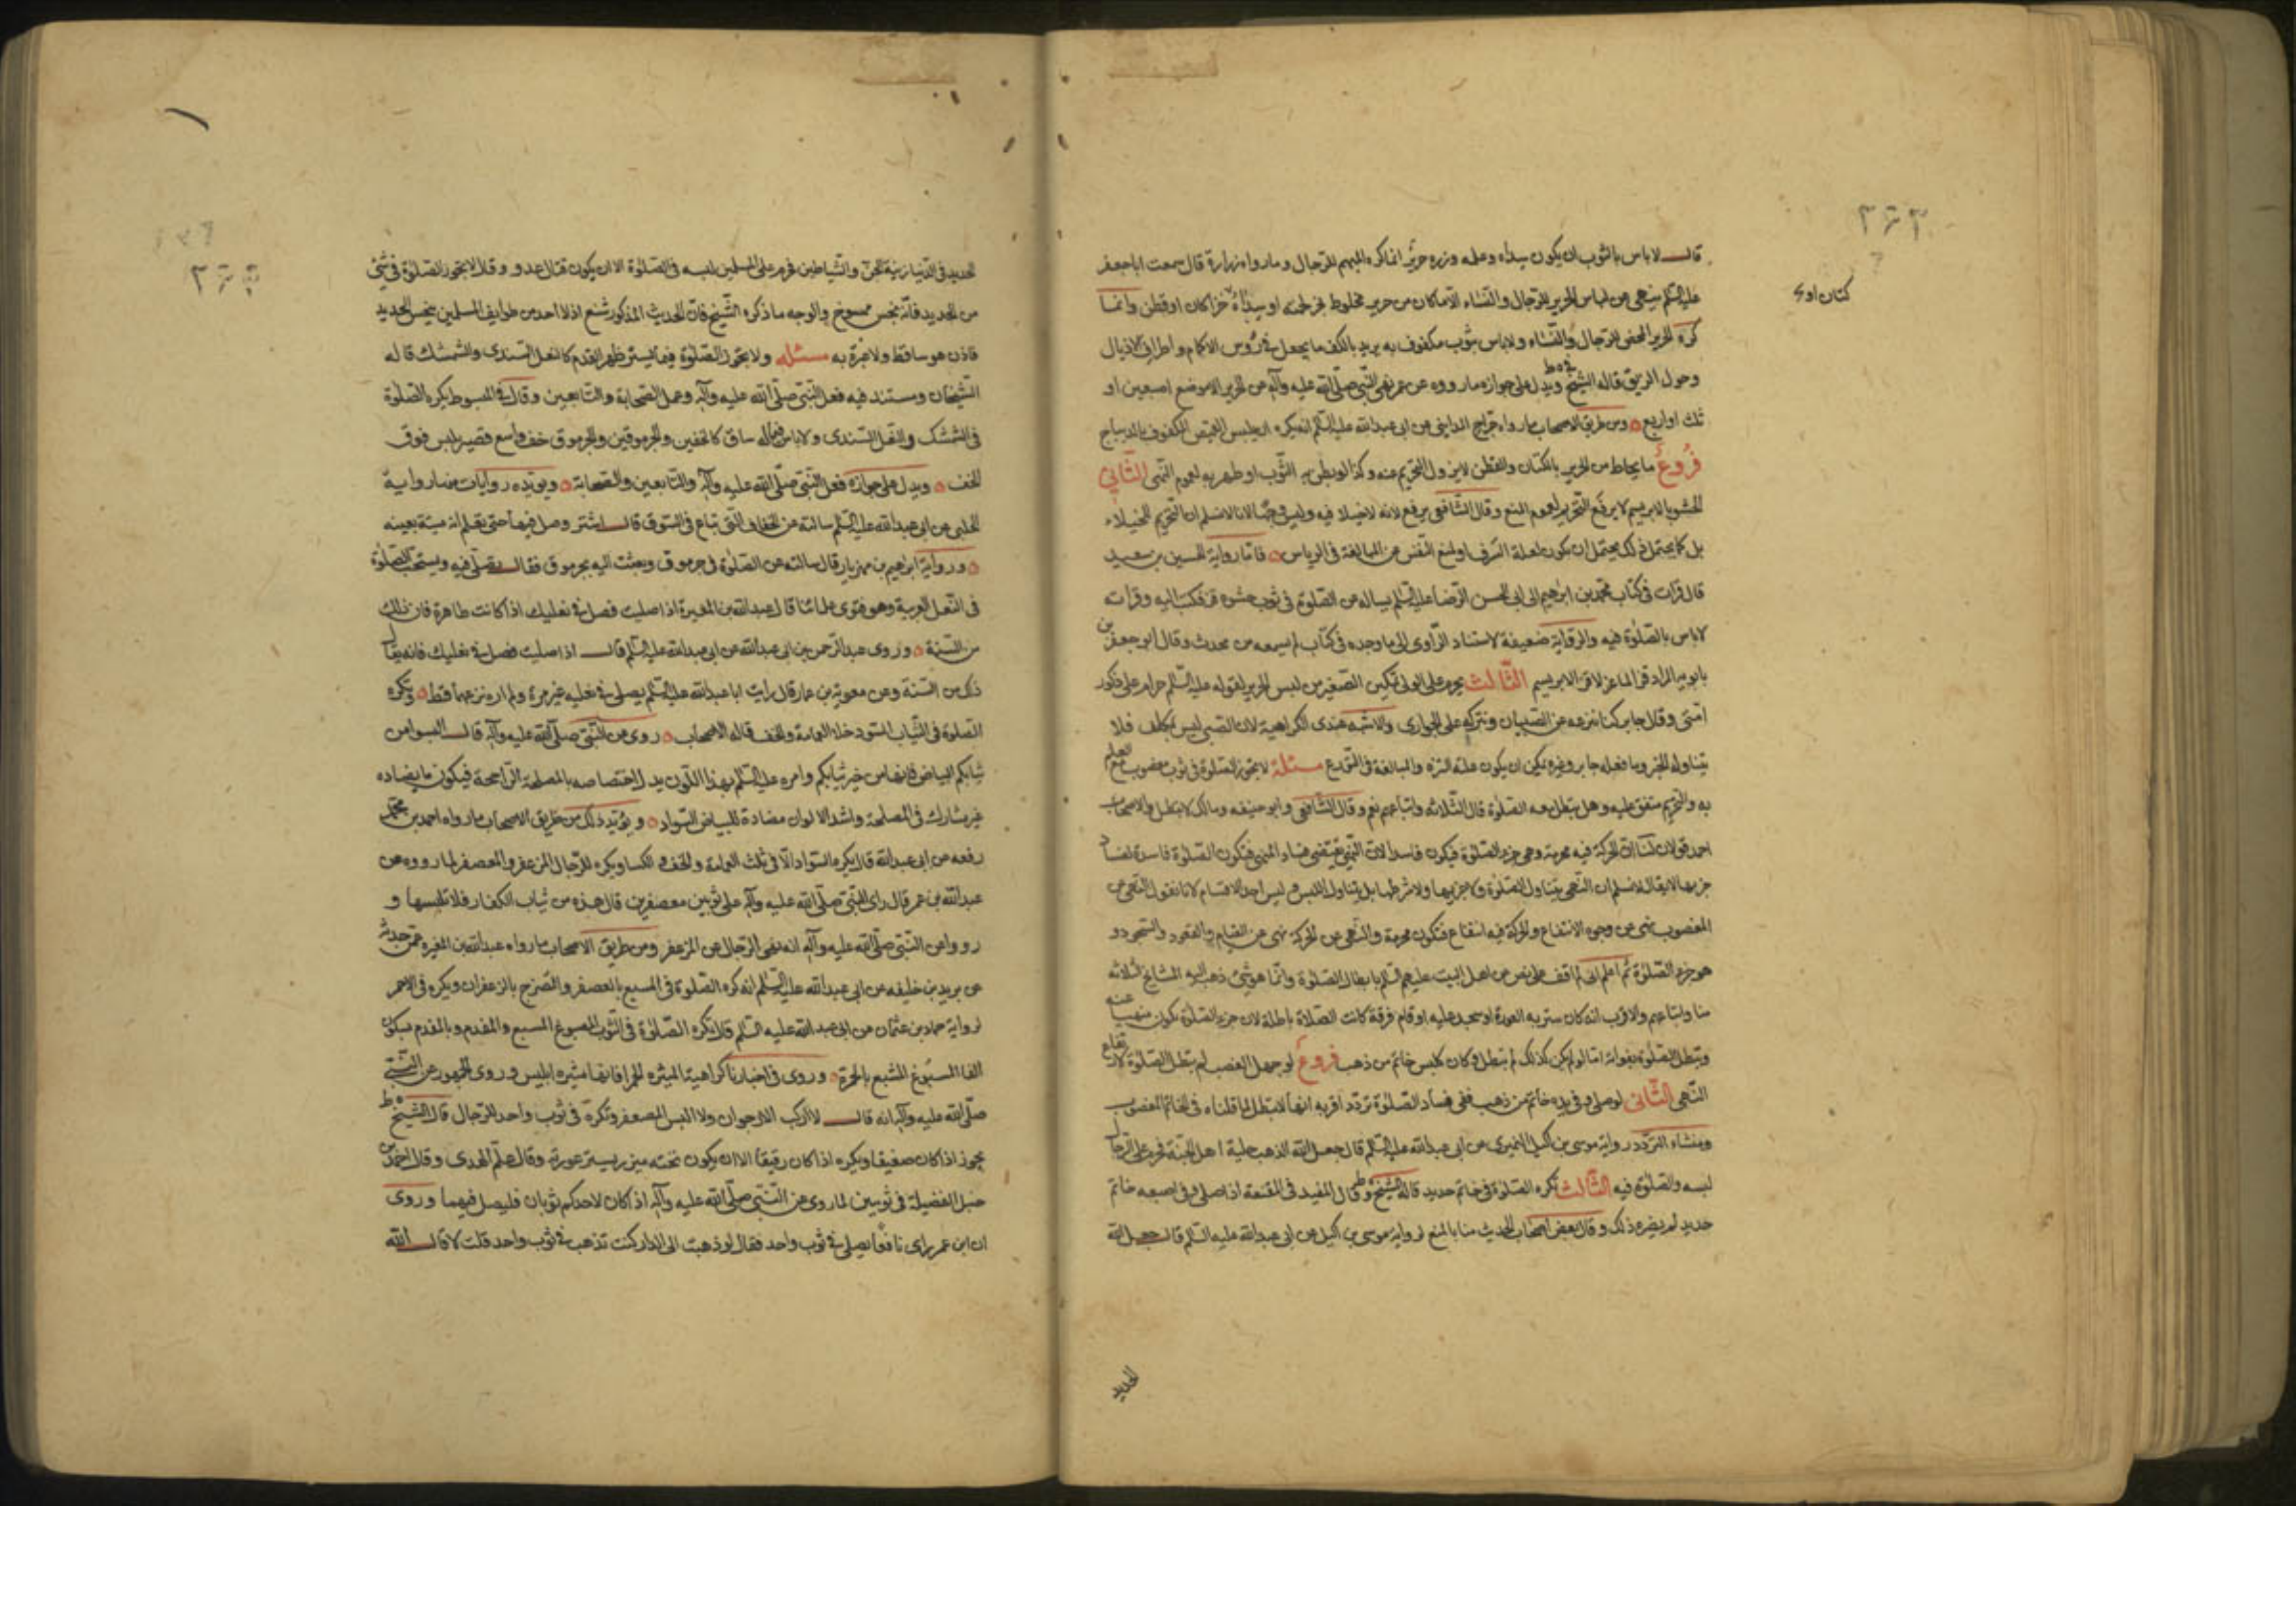 ٢٦٣
قال لا باس بالثوب ان يكون سداه وعلمه وزره حرير انما كره المبهم للرجال وما رواه زرارة قال سمعت ابا جعفر
كتان او ى
عليه السلم ينهى عن لباس الحرير للرجال والنساء الا ما كان من حرير مخلوط بخز لحمته او سداه خز او كتان او قطن وانما
كره الحرير المحض للرجال والنساء ولا باس بثوب مكفوف به يريد بالكف ما يجعل في رؤس الاكمام واطراف الاذيال
وحول الزيق قاله الشيخ في ط ويدل على جوازه ما رووه عن عمر نهى النبي صلى الله عليه وآله عن الحرير الا موضع اصبعين او
ثلث او اربع ومن طريق الاصحاب ما رواه جراح المدايني عن ابي عبد الله عليه السلم انه يكره ان يلبس القميص المكفوف بالديباج
فروع ما يخاط من الحرير بالكتان والقطن لا يزول التحريم عنه وكذا لو بطن به الثوب او ظهر به لعموم النهى الثاني
الحشو بالابريسم لا يرفع التحريم لعموم المنع وقال الشافعى يرفع لانه لا خيلا فيه وليس وجها لانا لا نسلم ان التحريم للخيلاء
بل كما يحتمل ذلك يحتمل ان يكون لعلة السرف او لمنع النفس من المبالغة في الرياس فاما رواية الحسين بن سعيد
قال قرات في كتاب محمد بن ابراهيم الى ابي الحسن الرضا عليه السلم يساله عن الصلوة في ثوب حشوه قز فكتب اليه وقراته
لا باس بالصلوة فيه والرواية ضعيفة لاستناد الراوى الى ما وجده في كتاب لم يسمعه من محدث وقال ابو جعفر بن
بابويه المراد قز الماعز لا قز الابريسم الثالث يحرم على الولى تمكين الصغير من لبس الحرير لقوله عليه السلم حرام على ذكور
امتى وقال جابر كنا ننزعه عن الصبيان ونتركه على الجوارى والاشبه عندى الكراهية لان الصبى ليس بمكلف فلا
يتناوله الخبر وما فعله جابر وغيره يمكن ان يكون علته التنزه والمبالغة في التورع مسئلة لا يجوز الصلوة في ثوب مغصوب مع العلم
به والتحريم متفق عليه وهل يبطل معه الصلوة قال الثلاثه واتباعهم نعم وقال الشافعى وابو حنيفه ومالك لا تبطل والاصحاب
احمد قولان لنا ان الحركة فيه محرمة وهى جزء الصلوة فيكون فاسدا لان النهى يقتضى فساد المنهى فتكون الصلوة فاسدة لفساد
جزءها لا يقال لا نسلم ان النهى يتناول الصلوة ولا جزءها ولا شرطها بل يتناول اللبس وليس احد الاقسام لانا نقول النهى عن
المغصوب نهى عن وجوه الانتفاع والحركة فيه انتفاع فتكون محرمة والنهى عن الحركة نهى عن القيام والقعود والسجود و
هو جزء الصلوة ثم اعلم انى لم اقف على نص من اهل البيت عليهم السلم بابطال الصلوة وانما هو شئ ذهب اليه المشايخ ثلاثه
منا واتباعهم والاقرب انه كان ستر به العورة او سجد عليه او قام فوقه كانت الصلاة باطلة لان جزء الصلوة يكون منهيا عنه
وتبطل الصلوة بفواته اما لو لم يكن كذلك لم تبطل وكان كلبس خاتم من ذهب فروع لو جهل الغصب لم تبطل الصلوة لارتفاع
النهى الثانى لو صلى وفي يده خاتم من ذهب ففى فساد الصلوة تردد اقربه انها لا تبطل لما قلناه في الخاتم المغصوب
ومنشاء التردد رواية موسى بن اكيل النميرى عن ابي عبد الله عليه السلم قال جعل الله الذهب حلية اهل الجنة فحرم على الرجال
لبسه والصلوة فيه الثالث تكره الصلوة في خاتم حديد قاله الشيخ في ط وقال المفيد في المقنعة اذا صلى وفي اصبعه خاتم
حديد لم يضره ذلك وقال بعض اصحاب الحديث منا بالمنع لرواية موسى بن اكيل عن ابي عبد الله عليه السلم قال جعل الله
الحديد
٢٦٤
الحديد في الدنيا زينة الجن والشياطين فحرم على المسلمين لبسه في الصلوة الا ان يكون قتال عدو وقال لا يجوز الصلوة في شئ
من الحديد فانه نجس ممسوخ والوجه ما ذكره الشيخ فان الحديث المذكور شنع اذ لا احد من طوايف المسلمين ينجس الحديد
فاذن هو ساقط ولا عبرة به مسئله ولا يجوز الصلوة فيما يستر ظهر القدم كالنعل السندى والشمشك قاله
الشيخان ومستند فيه فعل النبي صلى الله عليه وآله وعمل الصحابة والتابعين وقال في المبسوط يكره الصلوة
في الشمشك والنعل السندى ولا باس فيما له ساق كالخفين والجرموقين والجرموق خف واسع قصير يلبس فوق
الخف ويدل على جوازه فعل النبي صلى الله عليه وآله والتابعين والصحابة ويويده روايات منها رواية
الحلبى عن ابي عبد الله عليه السلم سالته عن الخفاف التى تباع في السوق قال اشتر وصل فيها حتى تعلم انه ميتة بعينه
ورواية ابراهيم بن مهزيار قال سالته عن الصلوة في جرموق وبعثت اليه بجرموق فقال يصلى فيه ويستحب الصلوة
في النعل العربية وهو فتوى علمائنا قال عبد الله بن المغيرة اذا صليت فصل في نعليك اذا كانت طاهرة فان ذلك
من السنة وروى عبد الرحمن بن ابي عبد الله عن ابي عبد الله عليه السلم قال اذا صليت فصل في نعليك فانه يقال
ذلك من السنة وعن معوية بن عمار قال رايت ابا عبد الله عليه السلم يصلى في نعليه غير مرة ولم اره نزعهما قط وتكره
الصلوة في الثياب السود خلا العمامة والخف قاله الاصحاب روى عن النبي صلى الله عليه وآله قال البسوا من
ثيابكم البياض فانها من خير ثيابكم وامره عليه السلم بهذا اللون يدل لاختصاصه بالمصلحة الراجحة فيكون ما يضاده
غير مشارك في المصلحة واشد الالوان مضادة للبياض السواد ويؤيد ذلك من طريق الاصحاب ما رواه احمد بن محمد
رفعه عن ابي عبد الله قال يكره السواد الا في ثلث العمامة والخف والكسا ويكره للرجال المزعفر والمعصفر لما رووه عن
عبد الله بن عمر قال راى النبي صلى الله عليه وآله على ثوبين معصفرين قال هذه من ثياب الكفار فلا تلبسها و
رووا عن النبي صلى الله عليه وآله انه نهى الرجال عن المزعفر ومن طريق الاصحاب ما رواه عبد الله بن المغيره عمن حدثه
عن يزيد بن خليفه عن ابي عبد الله عليه السلم انه كره الصلوة في المشبع بالعصفر والمضرج بالزعفران ويكره في الاحمر
لرواية حماد بن عثمان عن ابي عبد الله عليه السلم قال تكره الصلوة في الثوب المصبوغ المشبع والمفدم وبالمفدم بسكون
الفا المصبوغ المشبع بالحمرة وروى في اخبارنا كراهية الميثره الحمرا فانها ميثره ابليس وروى الجمهور عن النبي
صلى الله عليه وآله انه قال لا اركب الارجوان ولا البس المعصفر وتكره في ثوب واحد للرجال قال الشيخ في ط
يجوز اذا كان صفيقا ويكره اذا كان رقيقا الا ان يكون تحته ميزر يستر عورته وقال علم الهدى وقال احمد بن
حنبل الفضيلة في ثوبين لما روى عن النبي صلى الله عليه وآله اذا كان لاحدكم ثوبان فليصل فيهما وروى
ان ابن عمر راى نافعا يصلى في ثوب واحد فقال لو ذهبت الى الدار كنت تذهب في ثوب واحد قلت لا قال الله